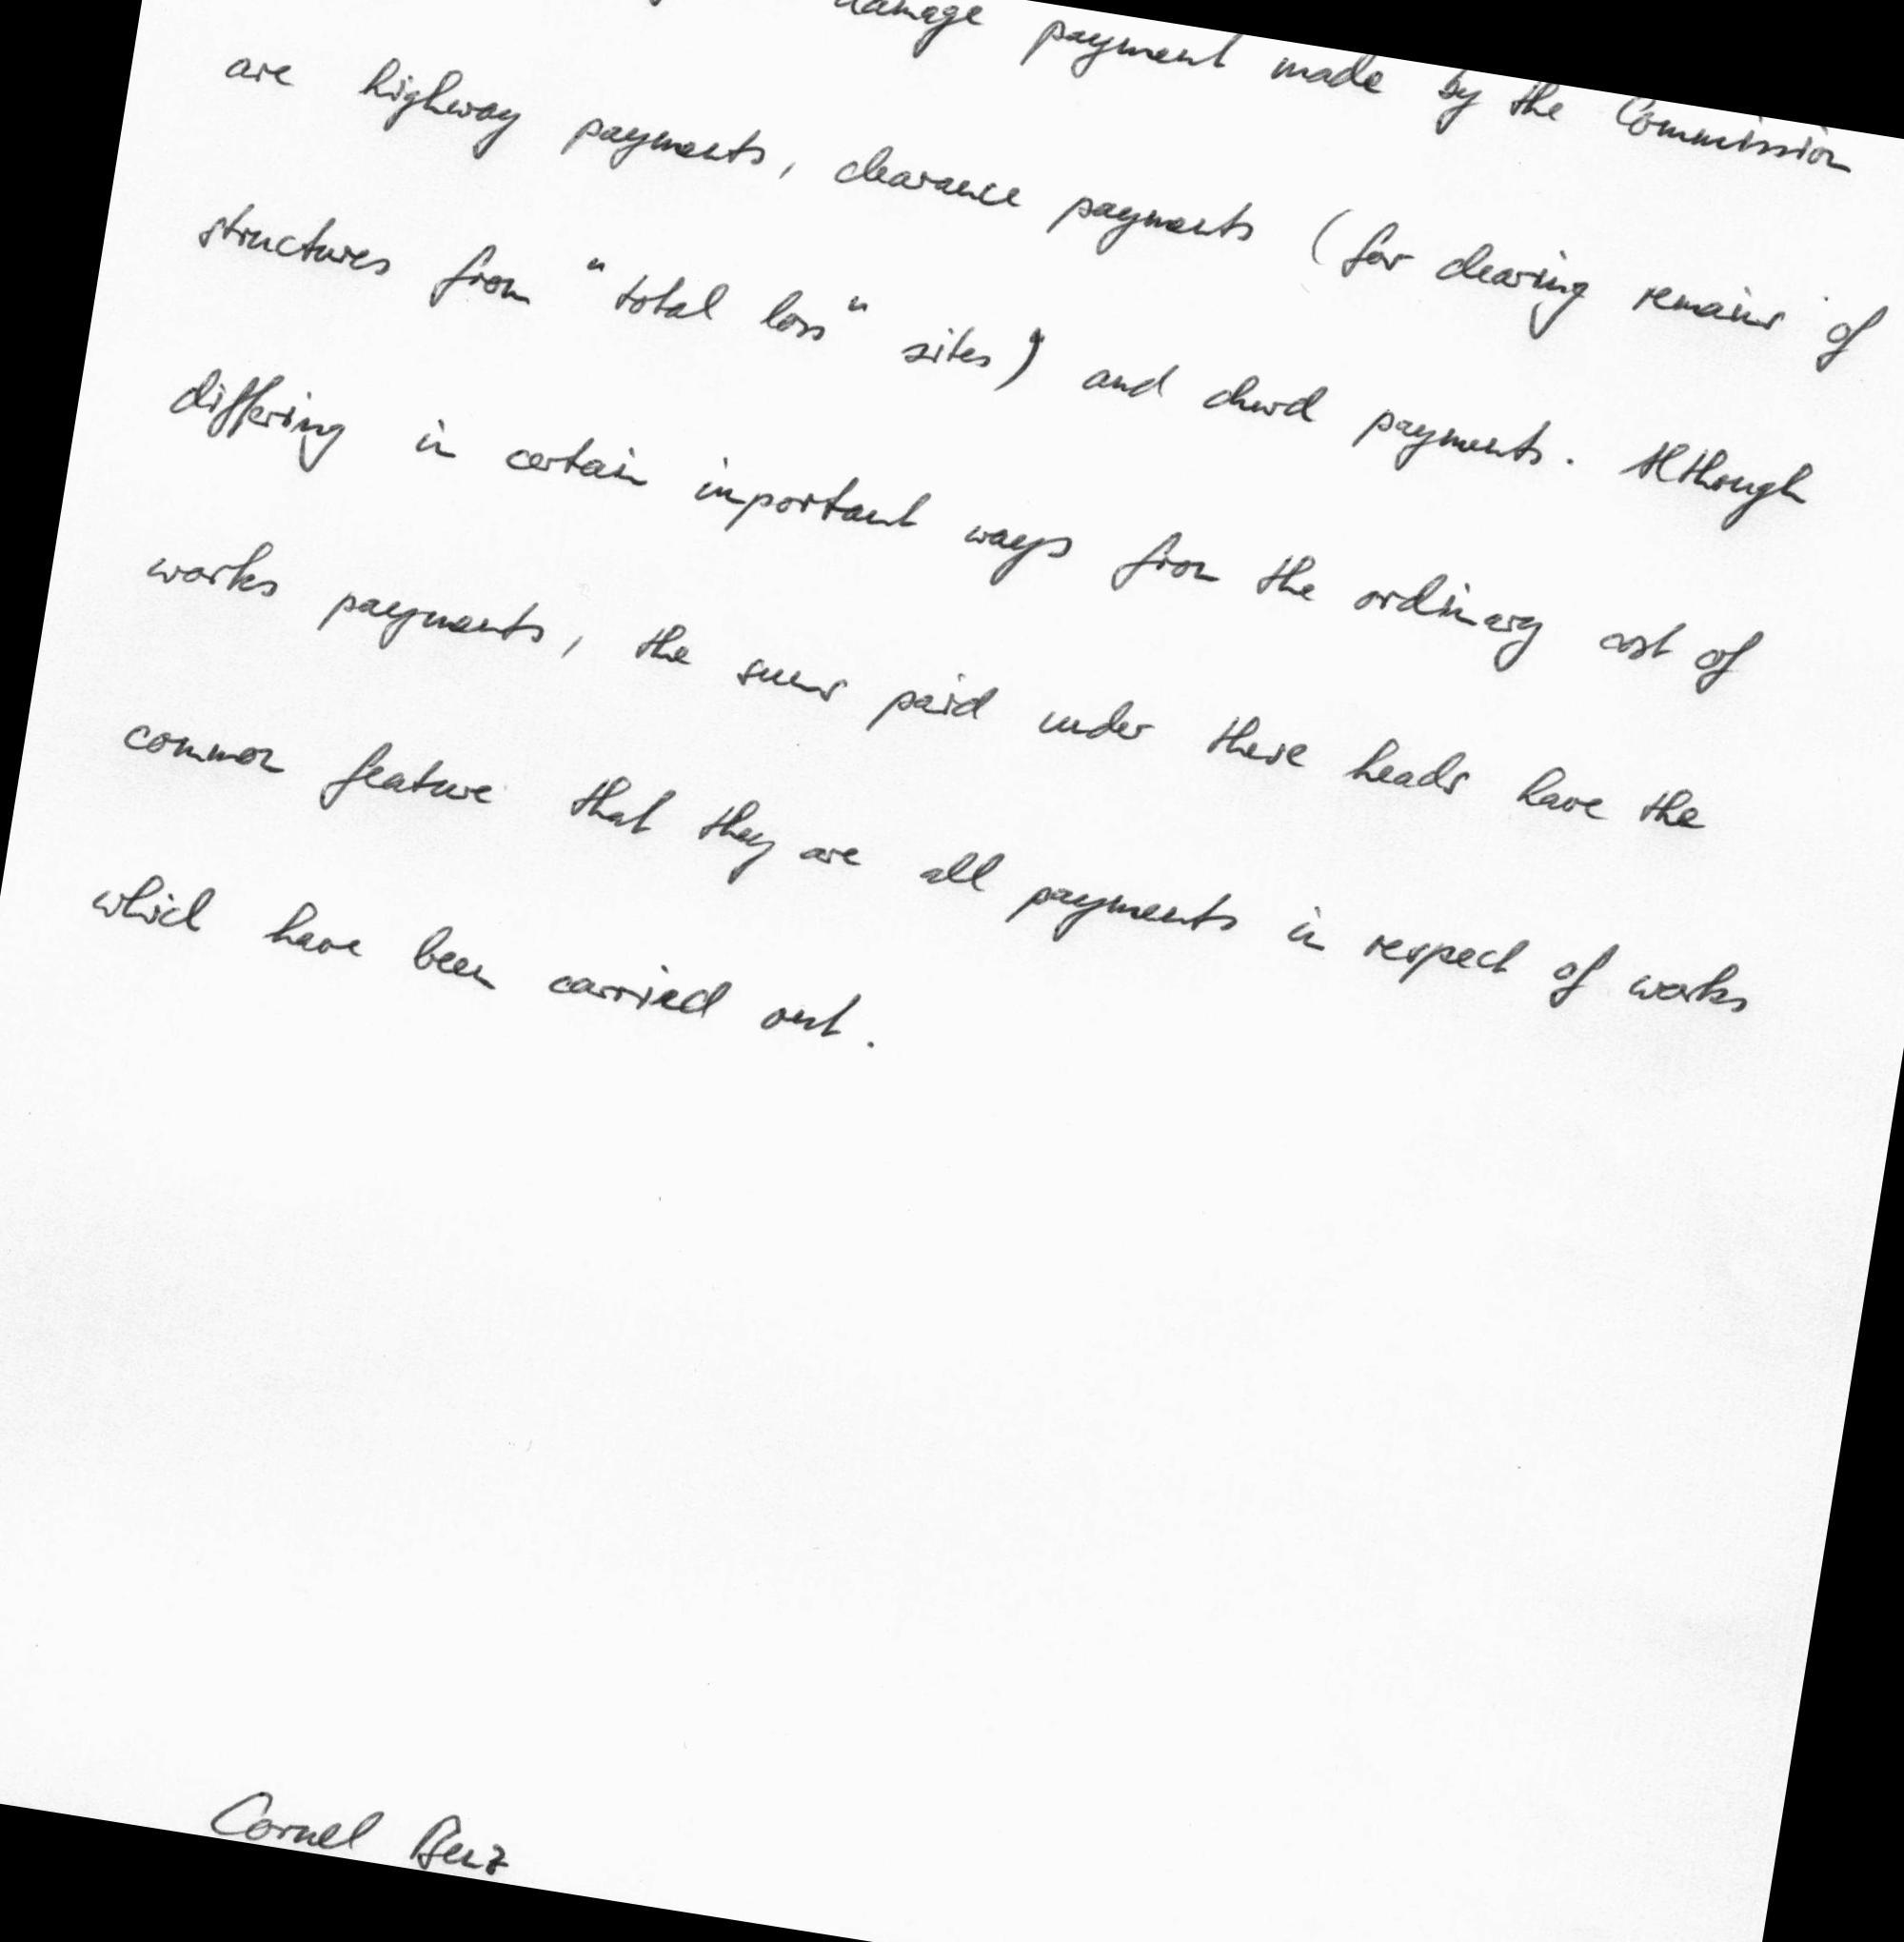 damage payment made by the Commission
are highway payments, clearance payments (for clearing remains of
structures from "total loss" sites) and chund payments. Although
differing in certain important ways from the ordinary cost of
works payments, the sums paid under these heads have the
common feature that they are all payments in respect of works
which have been carried out.
Cornel Benz